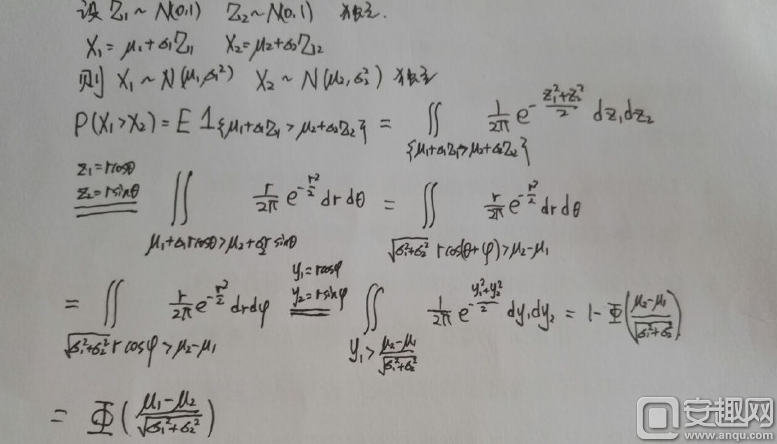 设 Z₁~N(0,1) Z₂~N(0,1) 独立.
X₁=μ₁+σ₁Z₁ X₂=μ₂+σ₂Z₂
则 X₁~N(μ₁,σ₁²) X₂~N(μ₂,σ₂²) 独立
P(X₁>X₂)=E 1{μ₁+σ₁Z₁>μ₂+σ₂Z₂} = ∬{μ₁+σ₁Z₁>μ₂+σ₂Z₂} 1/2π e^(-(z₁²+z₂²)/2) dz₁dz₂
z₁=rcosθ z₂=rsinθ == ∬μ₁+σ₁rcosθ>μ₂+σ₂rsinθ r/2π e^(-r²/2) drdθ = ∬√(σ₁²+σ₂²) rcos(θ+φ)>μ₂-μ₁ r/2π e^(-r²/2) drdθ
= ∬√(σ₁²+σ₂²) rcosφ>μ₂-μ₁ r/2π e^(-r²/2) drdφ y₁=rcosφ y₂=rsinφ == ∬y₁>(μ₂-μ₁)/√(σ₁²+σ₂²) 1/2π e^(-(y₁²+y₂²)/2) dy₁dy₂ = 1-Φ((μ₂-μ₁)/√(σ₁²+σ₂²))
= Φ((μ₁-μ₂)/√(σ₁²+σ₂²))
安趣网
WWW.ANQU.COM